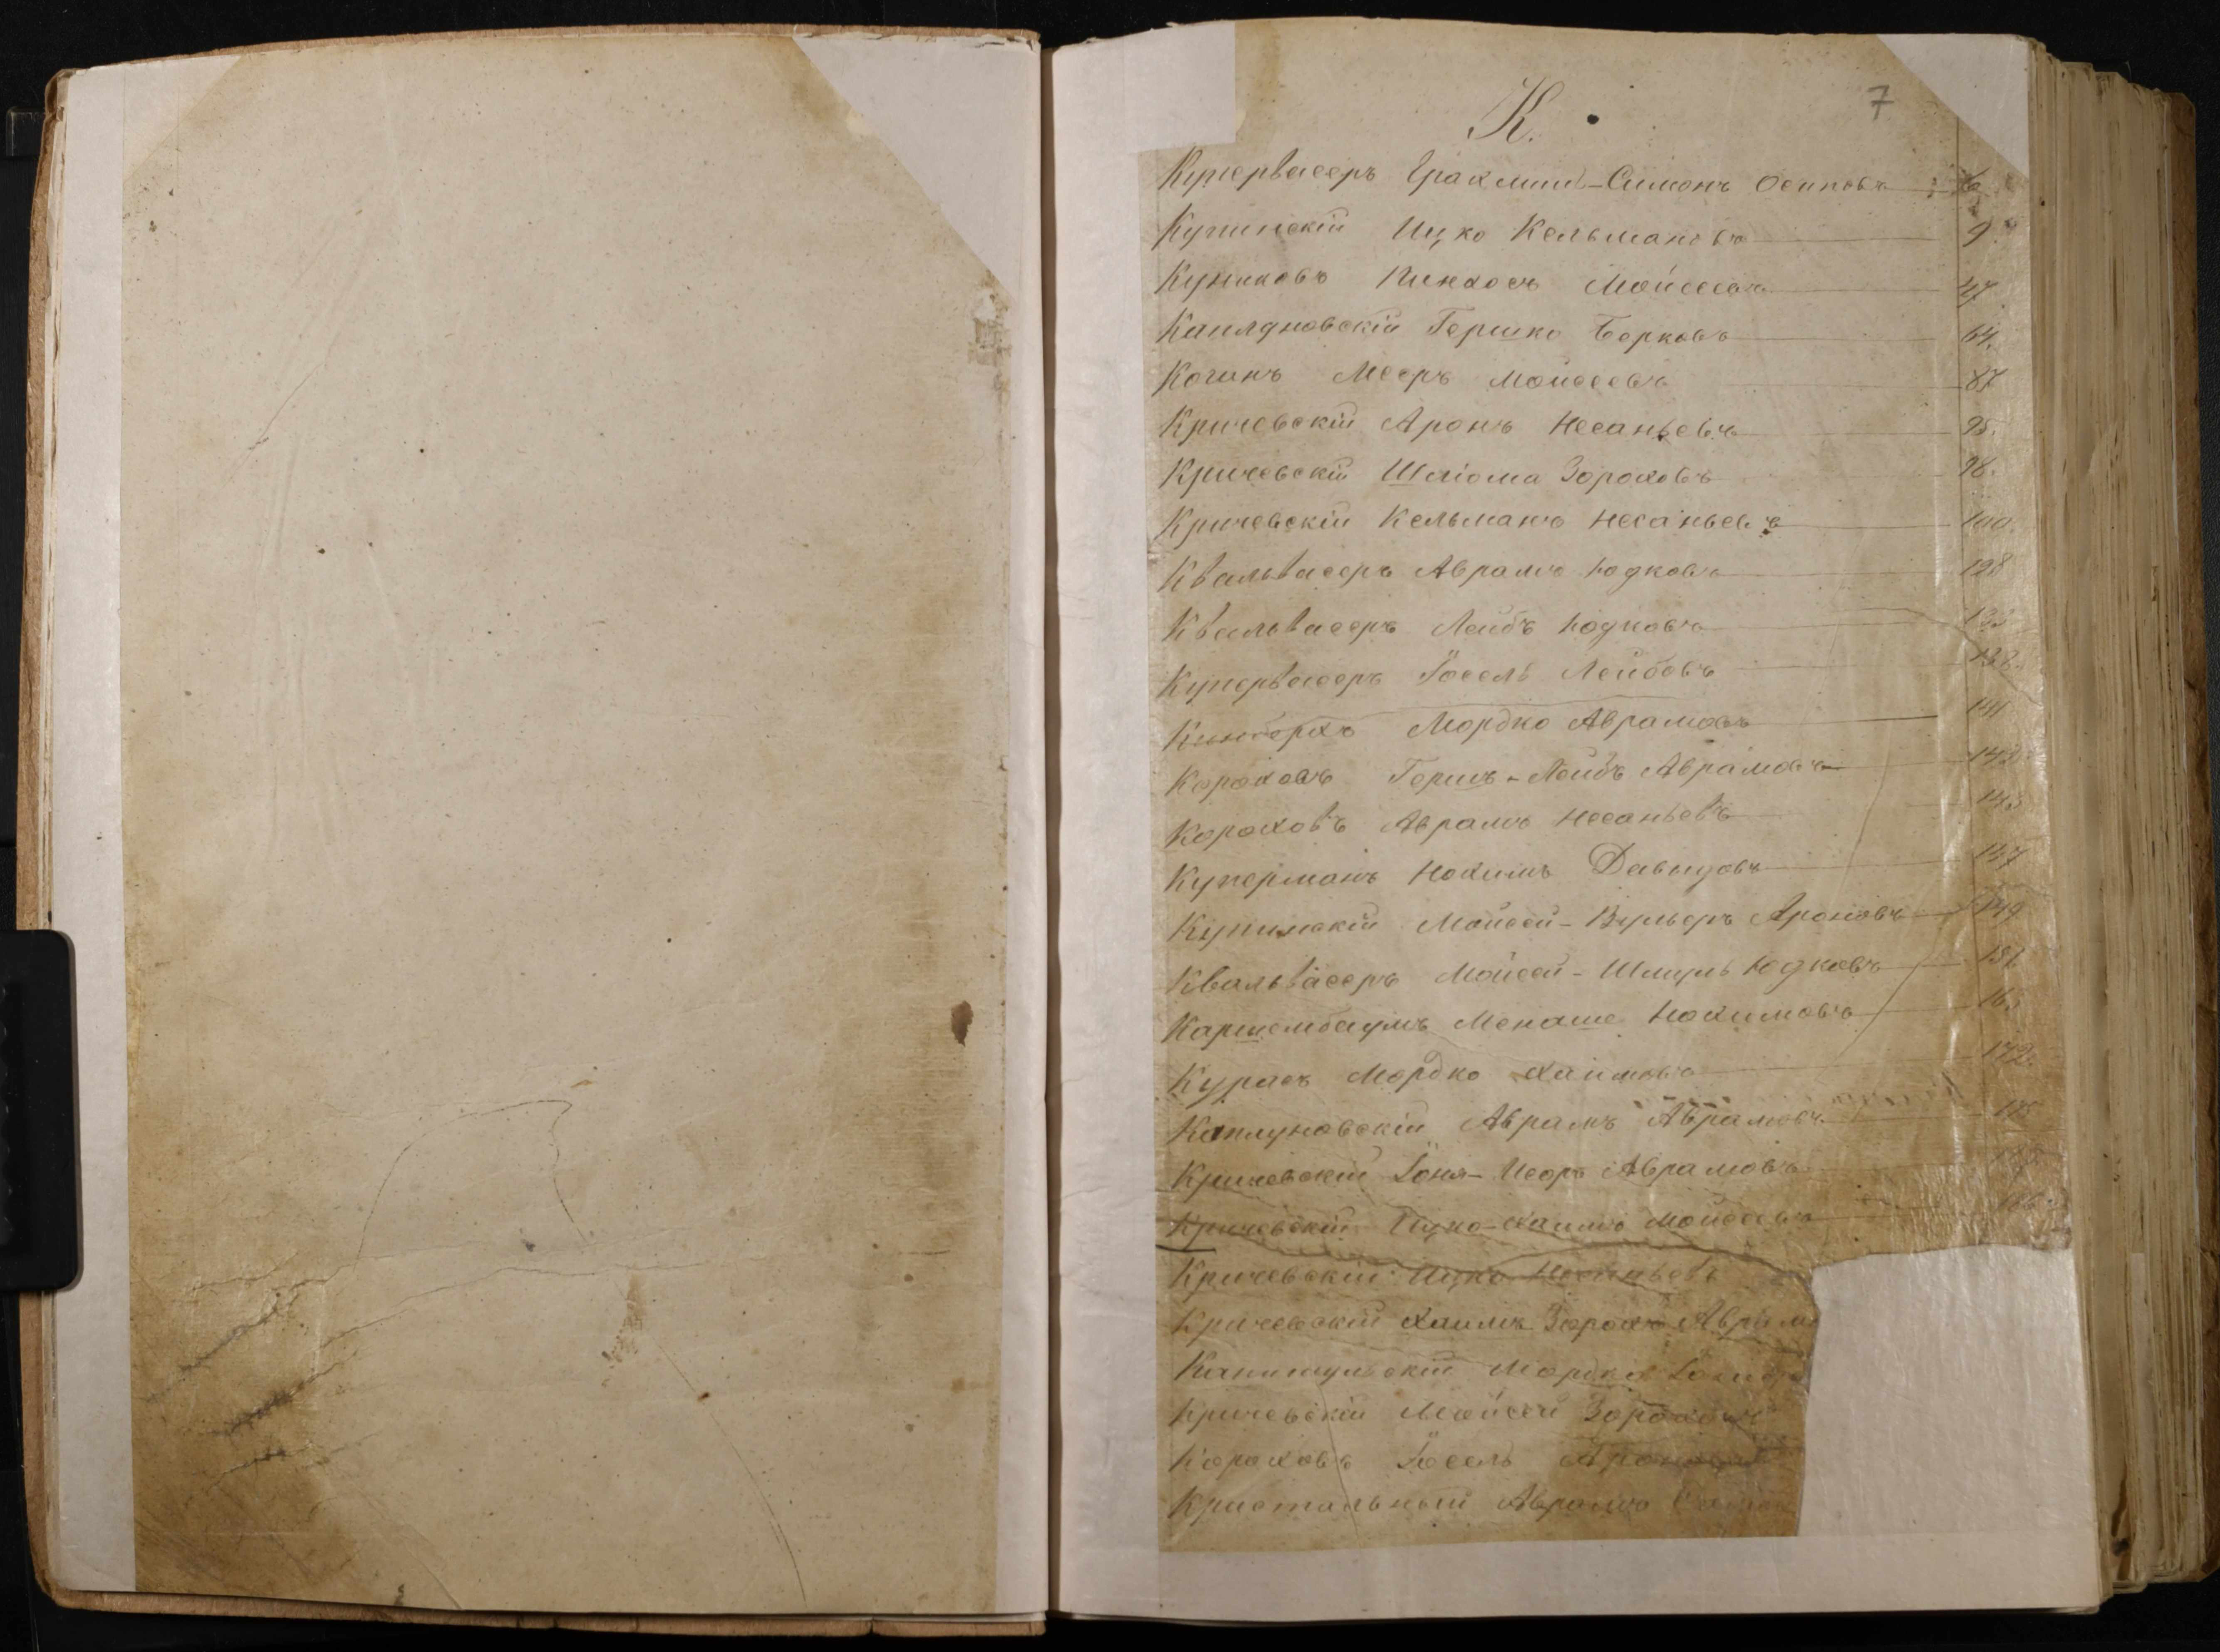 7
К.
Купервасеръ Срахмиил-Симонъ Осиповъ
Купинскій Ицко Кельмановъ 9
Куниковъ Пинхосъ Мойсеевъ 47
Каплуновскій Гершко Берковъ 64.
Коганъ Мееръ Мойсеевъ 87
Кричевскій Аронъ Несаньевъ 95.
Кричевскій Шліома Зороховъ 98.
Кричевскій Кельманъ Несаньевъ 100.
Квальвасеръ Аврамъ Юдковъ 128
Квальвасеръ Лейбъ Юдковъ 133
Купервасеръ Іосель Лейбовъ 138.
Мордко Аврамовъ 141
Короховъ Гершъ-Лейбъ Аврамовъ 142
Короховъ Аврамъ Несаньевъ 143
Куперманъ Нохимъ Давидовъ 147
Купинскій Мойсей-Вульфъ Ароновъ 149
Квальвасеръ Мойсей-Шмуль Юдковъ 151
Каршембаумъ Менаше Нохимовъ 163
Курасъ Мордко Хаимовъ 172.
Каплуновскій Аврамъ Аврамовъ 175
Кричевскій Іоня-Исоръ Аврамовъ
Кричевскій Ицко-Хаимъ Мойсеевъ
Кричевскій Ицко Несаньевъ
Кричевскій Хаимъ Зорохъ Аврамо
Мордко
Кричевскій Мойсей Зороховъ
Короховъ Іосель
Кристальный Аврамъ